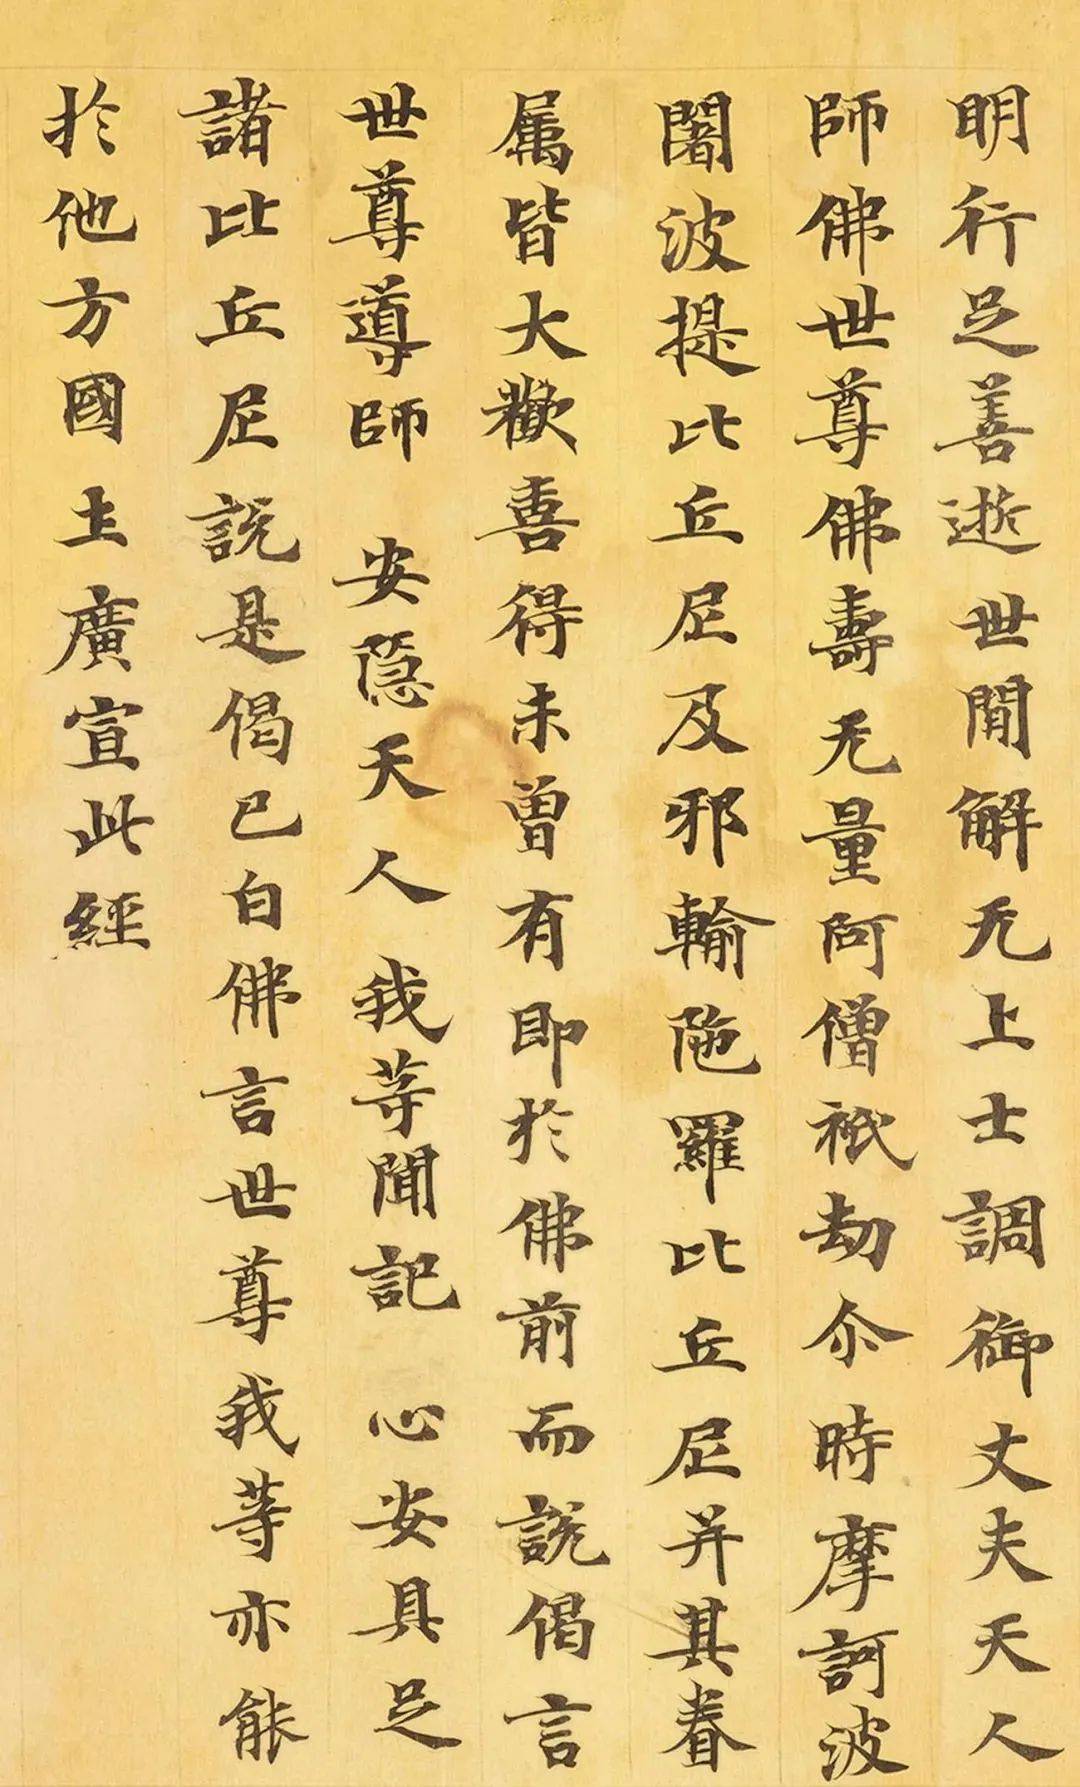 明行足善逝世間解无上士調御丈夫天人
師佛世尊佛壽无量阿僧祇劫尒時摩訶波
闍波提比丘尼及耶輸陁羅比丘尼并其眷
属皆大歡喜得未曾有即於佛前而說偈言
世尊導師　安隱天人　我等聞記　心安具足
諸比丘尼說是偈已白佛言世尊我等亦能
於他方國土廣宣此經